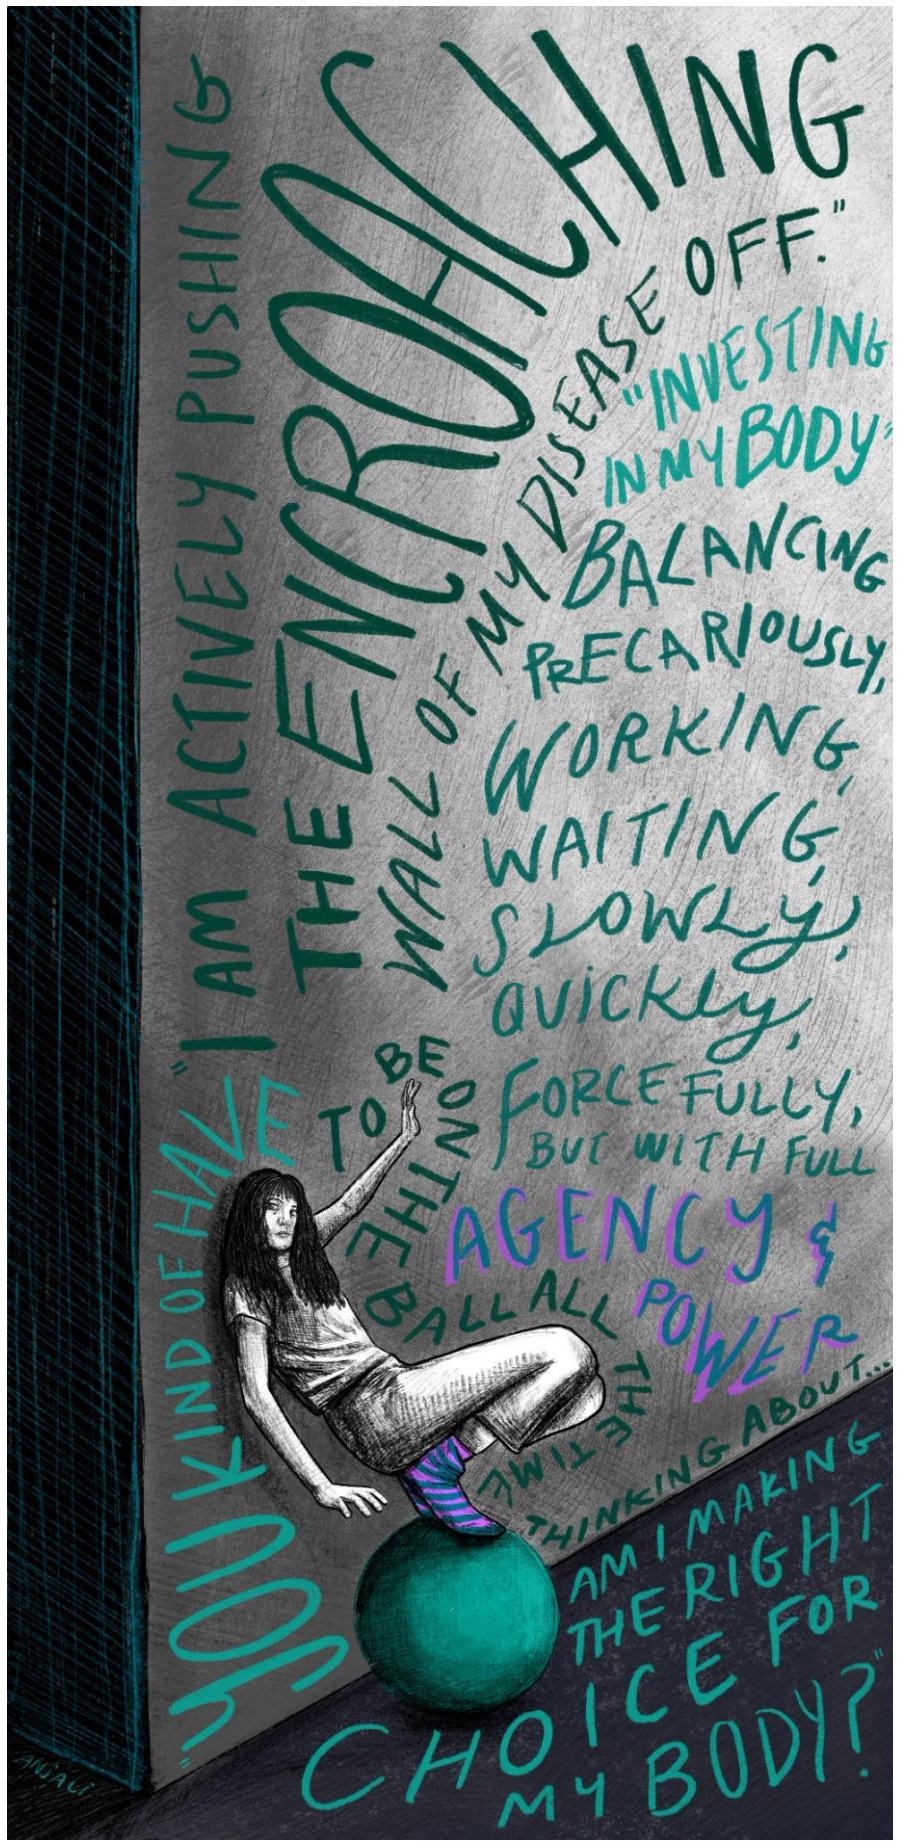 "I AM ACTIVELY PUSHING
THE ENCROACHING
WALL OF MY DISEASE OFF."
"INVESTING
IN MY BODY"
BALANCING
PRECARIOUSLY,
WORKING,
WAITING,
SLOWLY,
QUICKLY,
FORCEFULLY,
BUT WITH FULL
AGENCY &
POWER
"YOU KIND OF HAVE
TO BE
ON THE
BALL ALL
THE TIME
THINKING ABOUT...
AM I MAKING
THE RIGHT
CHOICE FOR
MY BODY?"
ANJALI